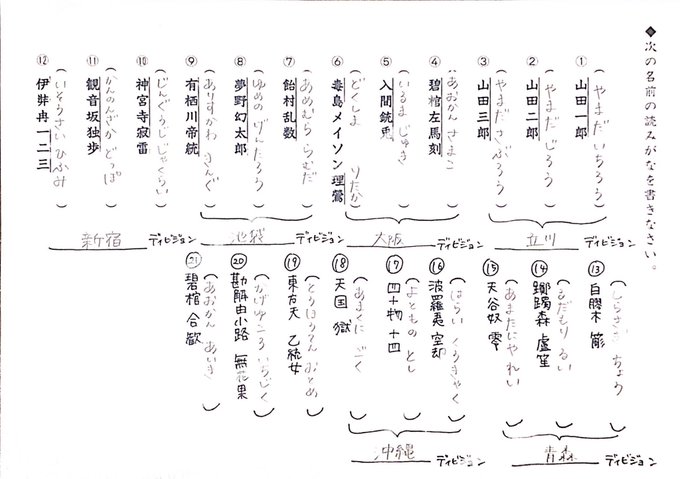 ◆次の名前の読みがなを書きなさい。
①山田一郎(やまだ いちろう)
②山田二郎(やまだ じろう)
③山田三郎(やまだ さぶろう)
立川ディビジョン
④碧棺左馬刻(あおかん さまこ)
⑤入間銃兎(いるま じゅき)
⑥毒島メイソン理鶯(どくしま りたか)
大阪ディビジョン
⑦飴村乱数(あめむら らむだ)
⑧夢野幻太郎(ゆめの げんたろう)
⑨有栖川帝統(ありすかわ きんぐ)
池袋ディビジョン
⑩神宮寺寂雷(じんぐうじ じゃくらい)
⑪観音坂独歩(かんのんざか どっぽ)
⑫伊弉冉一二三(いそうさい ひふみ)
新宿ディビジョン
⑬白膠木 簓(しらさぎ ちょう)
⑭躑躅森 盧笙(るだもり るい)
⑮天谷奴 零(あまたにやれい)
青森ディビジョン
⑯波羅夷 空却(はらい くうきゃく)
⑰四十物 十四(よともの とし)
⑱天国 獄(あまくに ごく)
沖縄ディビジョン
⑲東方天 乙統女(とうほうてん おとめ)
⑳勘解由小路 無花果(かげゆこうろ いちじく)
㉑碧棺 合歓(あおかん あいき)